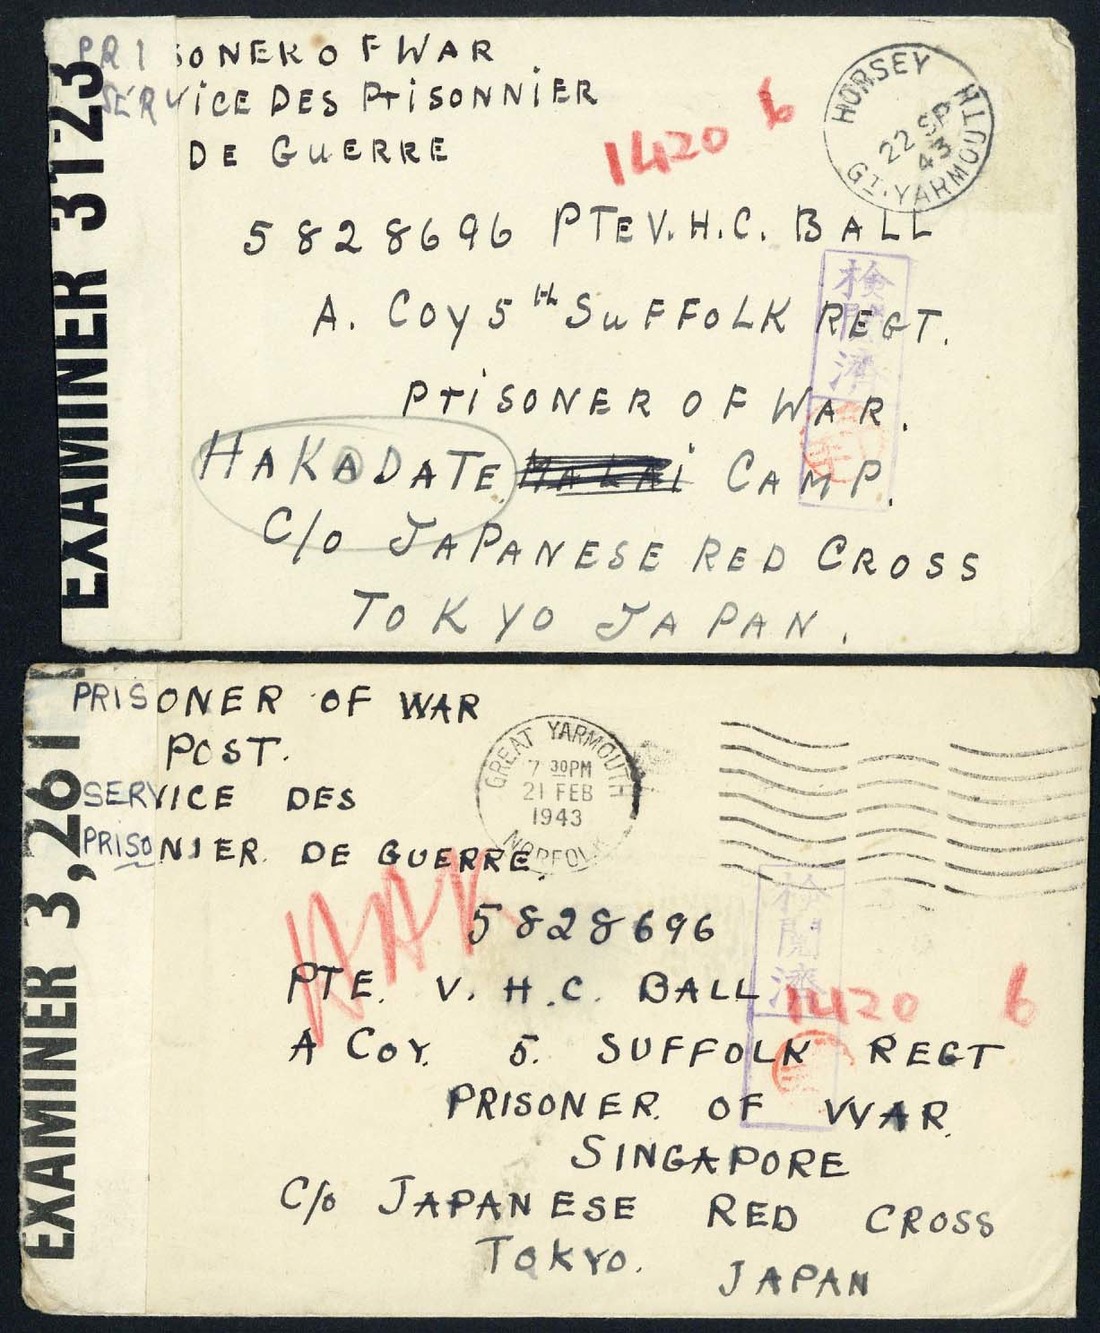 PRISONER OF WAR
SERVICE DES PRISONNIER
DE GUERRE
EXAMINER 3123
1420 6
HORSEY
22 SP
43
GT. YARMOUTH
5828696 PTE V.H.C. BALL
A. COY 5th SUFFOLK REGT.
PRISONER OF WAR.
HAKADATE MALAI CAMP.
C/O JAPANESE RED CROSS
TOKYO JAPAN.
検閲濟
PRISONER OF WAR
POST.
SERVICE DES
PRISONIER DE GUERRE.
EXAMINER 3,261
GREAT YARMOUTH
7 30PM
21 FEB
1943
NORFOLK
HAK
5828696
PTE. V. H. C. BALL
1420 6
A COY. 5. SUFFOLK REGT
PRISONER OF WAR.
SINGAPORE
C/O JAPANESE RED CROSS
TOKYO.
JAPAN
検閲濟